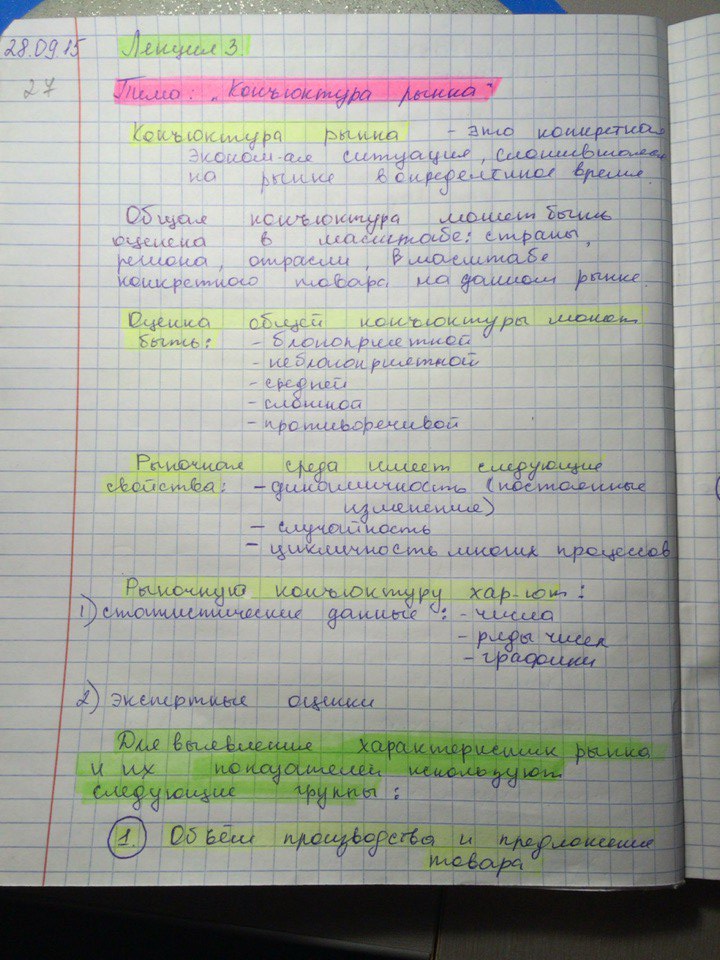 28.09.15 Лекция 3
27
Тема: "Конъюктура рынка"
Конъюктура рынка - это конкретная
эконом-ая ситуация, сложившаяся
на рынке в определённое время.
Общая конъюктура может быть
оценена в масштабе: страны,
региона, отрасли, в масштабе
конкретного товара на данном рынке.
Оценка общей конъюктуры может
быть: - благоприятной
- неблагоприятной
- средней
- сложной
- противоречивой
Рыночная среда имеет следующие
свойства: - динамичность (постоянные
изменения)
- случайность
- цикличность многих процессов
Рыночную конъюктуру хар-ют:
1) статистические данные: - числа
- ряды чисел
- графики
2) экспертные оценки
Для выявления характеристик рынка
и их показателей используют
следующие группы:
1. Объём производства и предложение
товара